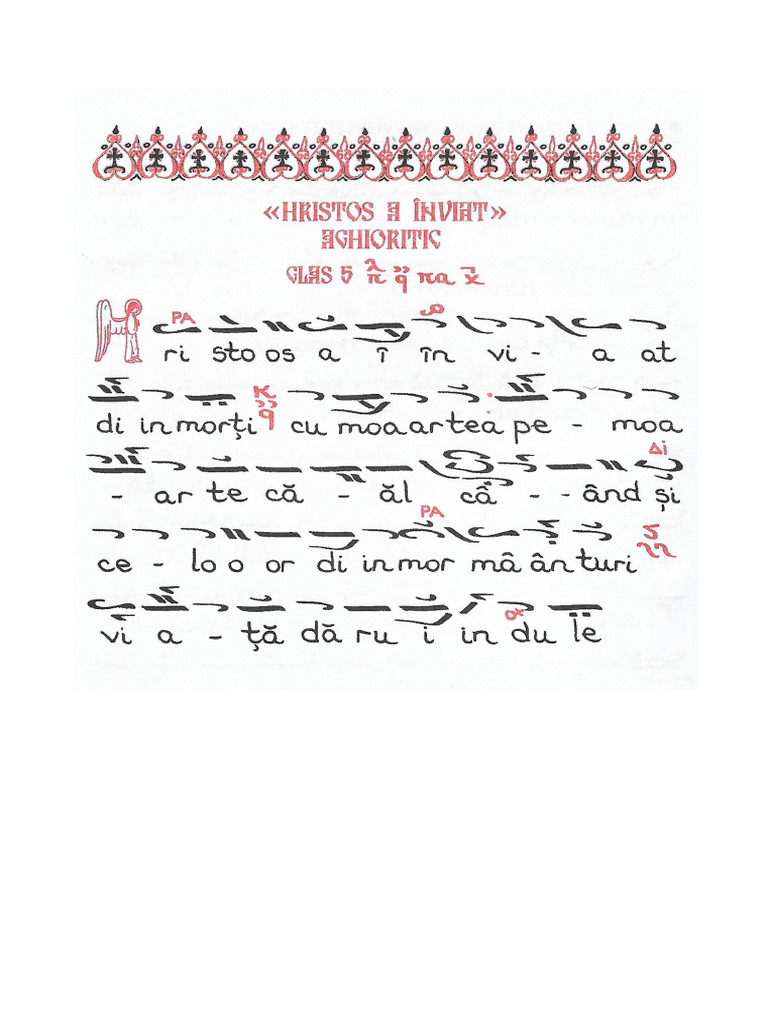 «HRISTOS A ÎNVIAT»
AGHIORITIC
GLAS 5 πα
PA
H ri sto os a î în vi - a at
di in morți cu moa ar tea pe - moa
Di
- ar te că - ăl câ - - ând și
PA
ce - lo o or di in mor mâ ân turi
vi a - ță dă ru i in du le